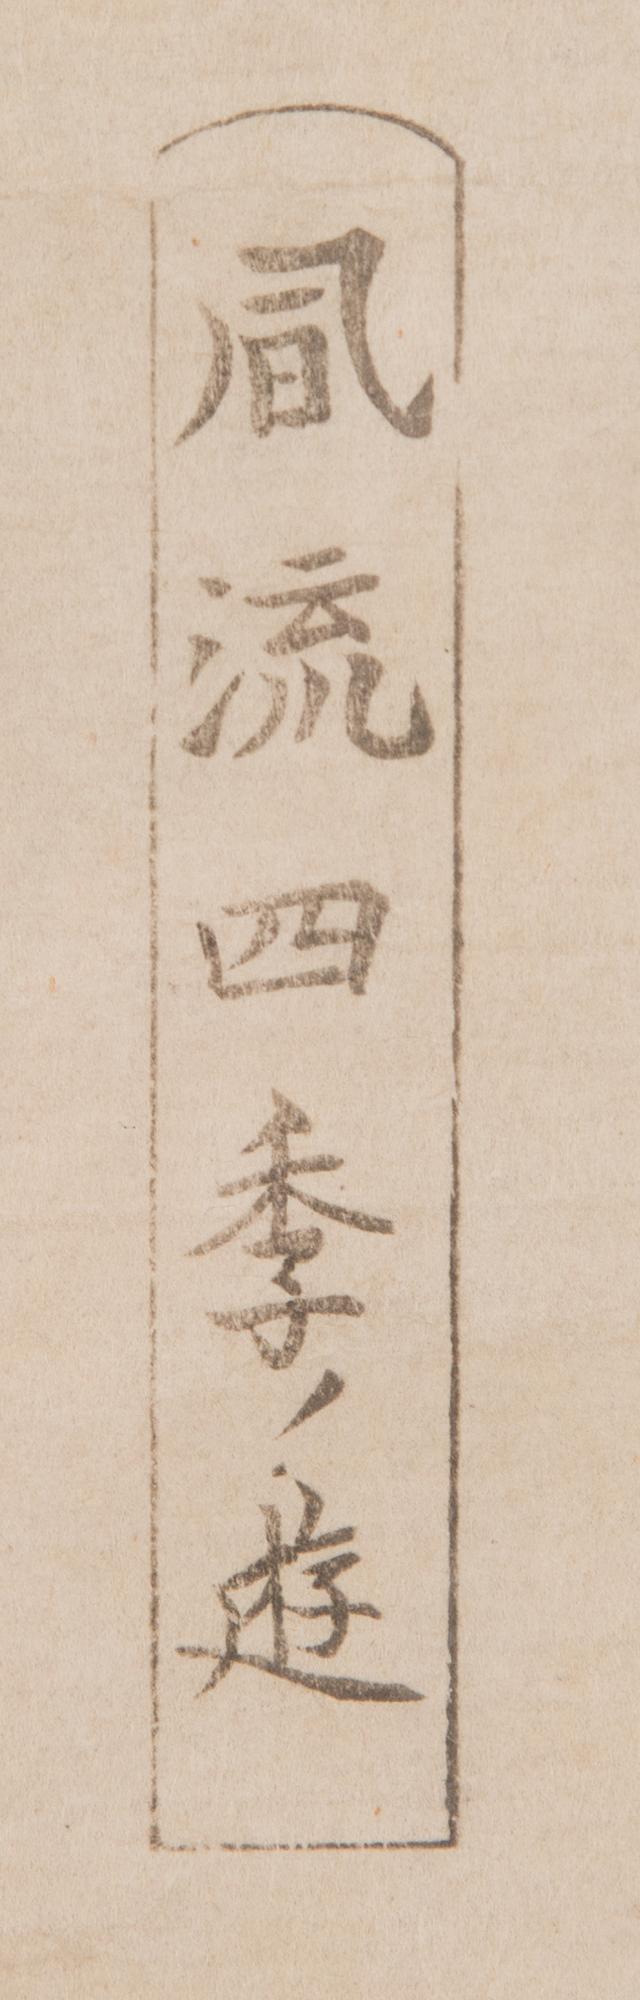 凮流四季ノ遊